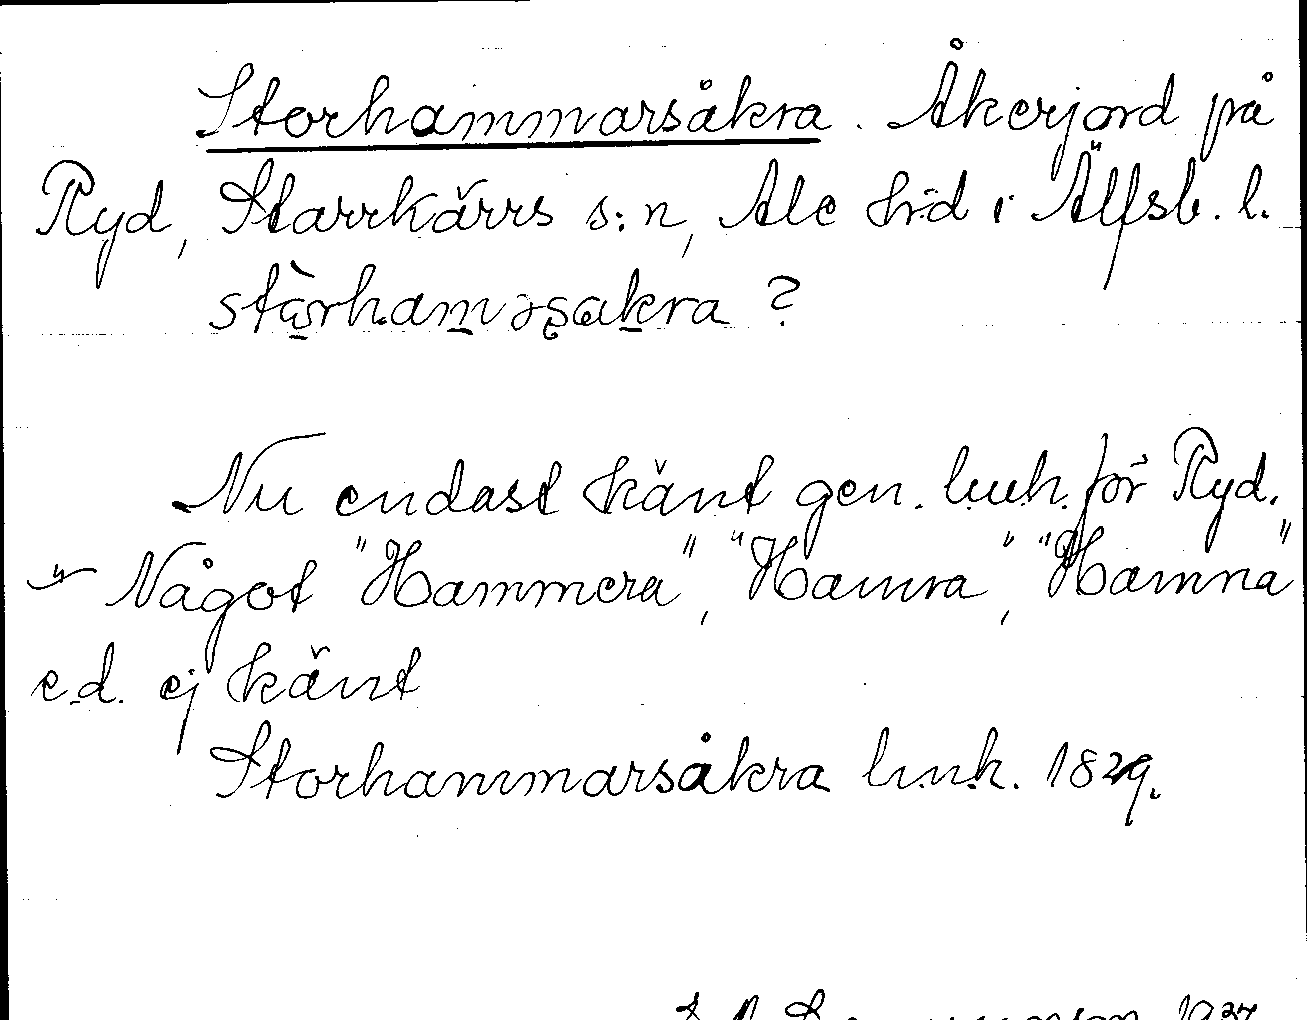 Storhammarsåkra. Åkerjord på
Ryd, Starrkärrs s:n, Ale h:d i Älfsb. l.
stòrhamərsakra ?
Nu endast känt gen. l.u.h. för Ryd.
Något "Hammera", "Hamra", "Hamna"
e.d. ej känt
Storhammarsåkra l.u.h. 1829.
1937